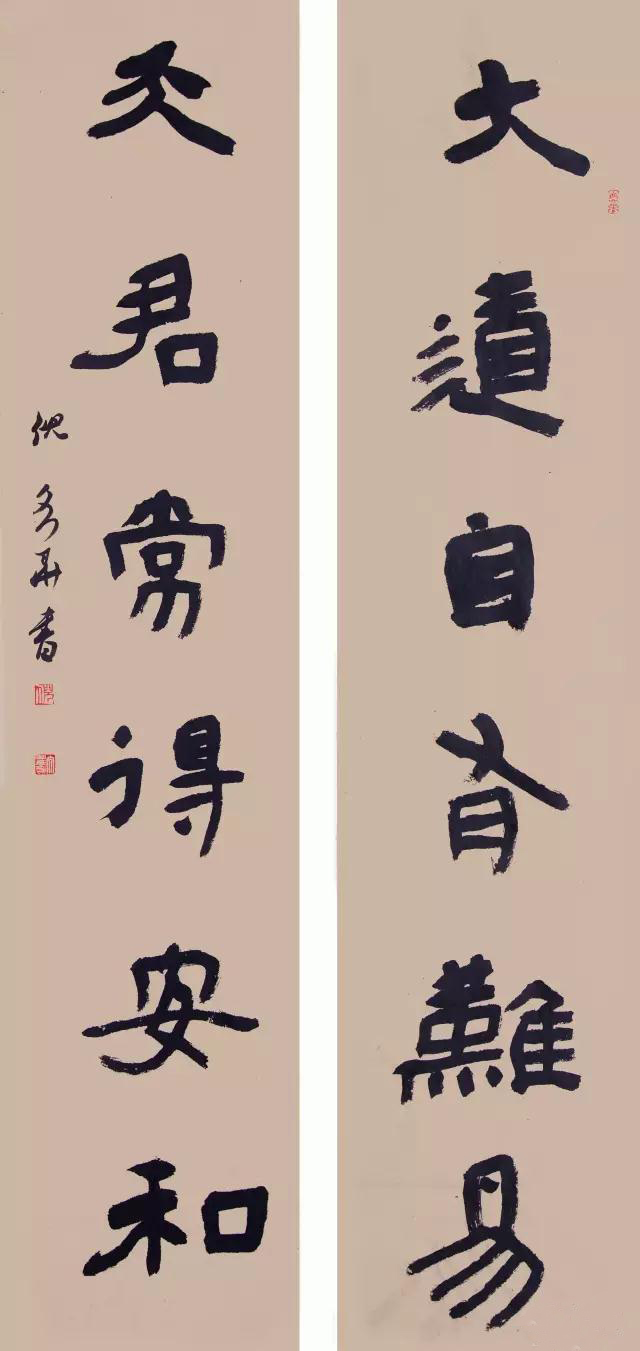 大道自有難易
天君常得安和
倪 書